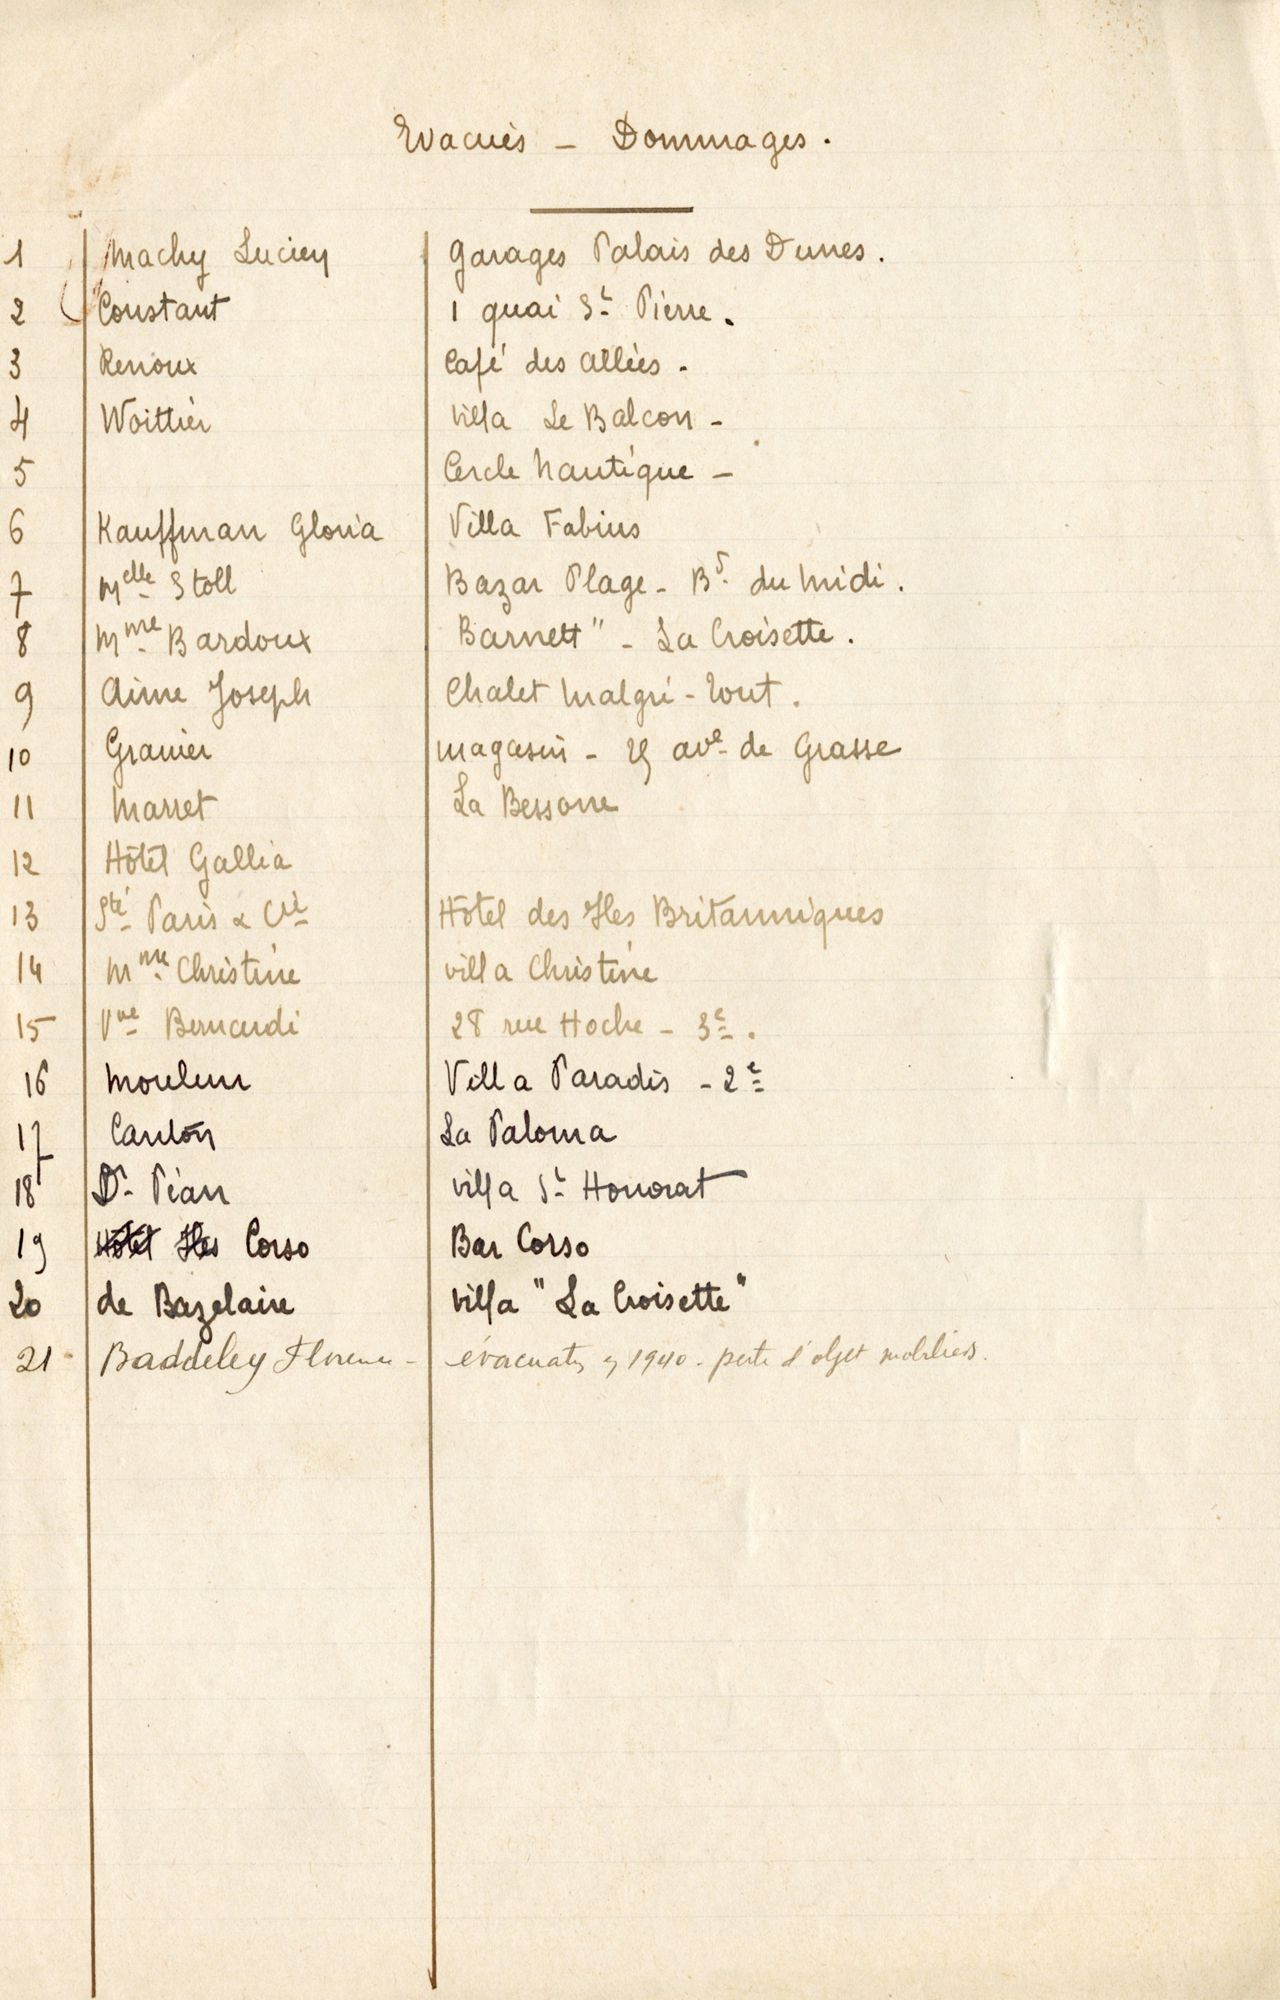 Evacués - Dommages.
1 Machy Lucien Garages Palais des Dunes.
2 Constant 1 quai St Pierre.
3 Renoux Café des Allées.
4 Woittier Villa Le Balcon -
5 Cercle Nautique -
6 Kauffman Gloria Villa Fabius
7 Melle Stoll Bazar Plage - Bd du Midi.
8 Mme Bardoux Barnett" - La Croisette.
9 Aime Joseph Chalet Malgré-Tout.
10 Granier Magasin - ave de Grasse
11 Marret La Bessonne
12 Hôtel Gallia
13 Sté Paris & Cie Hôtel des Iles Britanniques
14 Mme Christine villa Christine
15 Vve Bernardi 28 rue Hoche - 3e.
16 Villa Paradis - 2e
17 La Paloma
18 Dr Péan villa St Honorat
19 Hôtel Iles Corso Bar Corso
20 de Bazelaire Villa "La Croisette"
21 Baddeley Florence - évacuatn 1940. perte d'objet mobiliers.